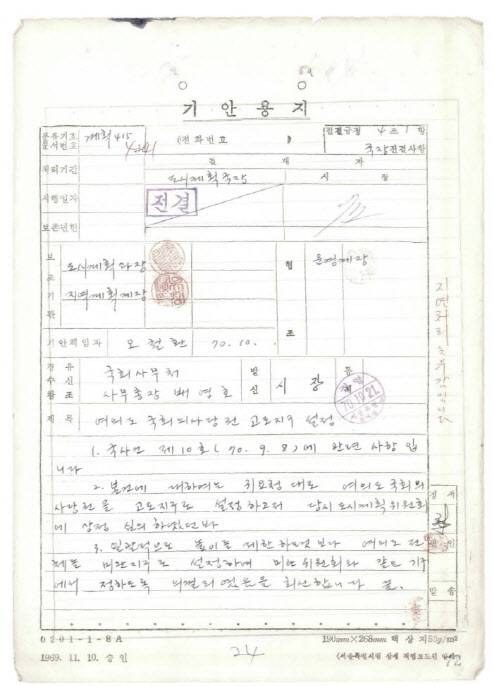 기안용지
분류기호 문서번호 계획 415
(전화번호 )
전결규정 4조 1항
국장전결사항
처리기간
결재자
도시계획국장
시장
시행일자
전결
보존년한
보조기관
도시계획과장
지역계획계장
협조
운영계장
기안책임자
70. 10.
경유 수신 참조
국회사무처
사무총장 배영호
발신
시장
70.10.21
제목
여의도 국회의사당 전 고도지구 설정
1. 국사민 제10호('70. 9. 8)에 관련 사항 입
니다
2. 본건에 대하여는 귀요청 대로 여의도 국회의
사당 전을 고도지구로 설정하고저 당시 도시계획위원회
에 상정 심의 하였던바
3. 일률적으로 높이를 제한하는 것보다 여의도 전
체를 미관지구로 설정하여 미관위원회와 같은 기구
에서 정하도록 의결되였음을 회신합니다 끝.
0201-1-8A
1969. 11. 10. 승인
190mm×268mm 백상지 55g/m²
24